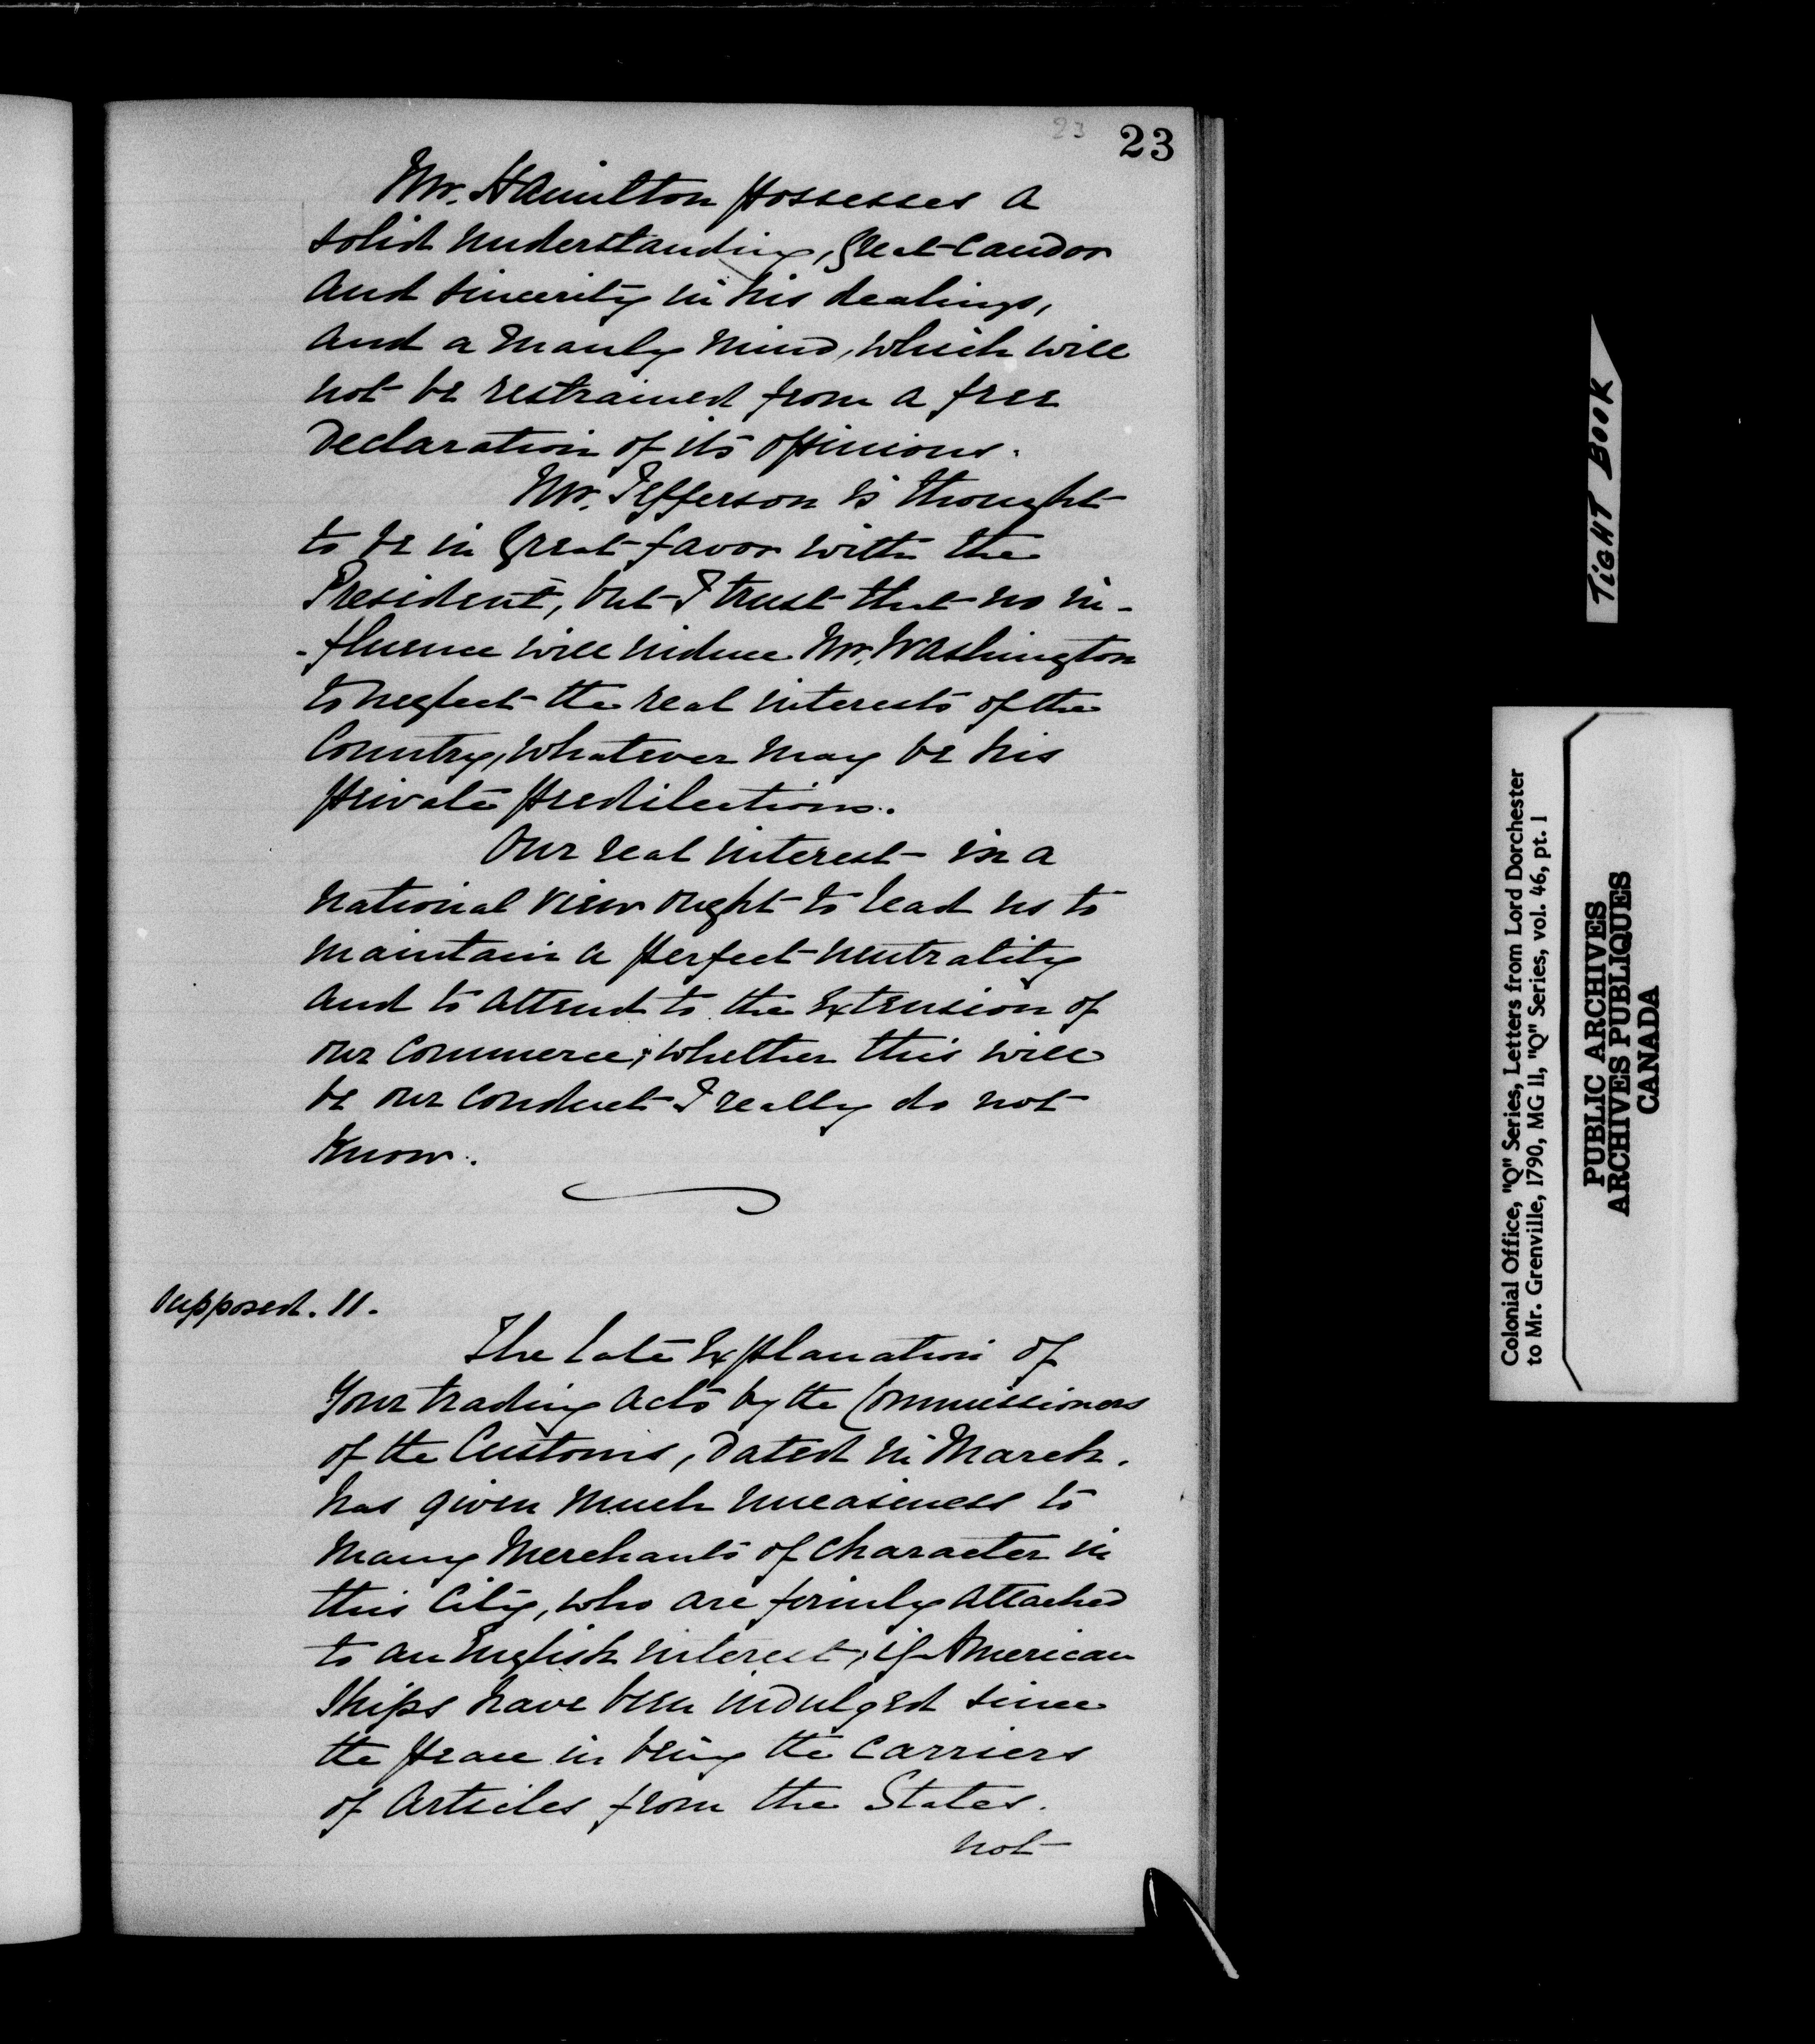 23 23
Mr. Hamilton possesses a
solid understanding, great candor
and sincerity in his dealings,
and a manly mind, which will
not be restrained from a free
Declaration of its opinions.
Mr. Jefferson is thought
to be in great favor with the
President, but I trust that no in-
-fluence will induce Mr. Washington
to neglect the real interests of the
Country, whatever may be his
private predilections.
Our real interest in a
national view ought to lead us to
maintain a perfect neutrality
and to attend to the extension of
our Commerce; whether this will
be our conduct I really do not
know.
Supposed. 11.
The late explanation of
Your trading acts by the Commissioners
of the Customs, dated in March.
has given much uneasiness to
many Merchants of character in
this City, who are firmly attached
to an English interest; if American
Ships have been indulged since
the peace in being the carriers
of Articles from the States.
not
TIGHT BOOK
Colonial Office, "Q" Series, Letters from Lord Dorchester
to Mr. Grenville, 1790, MG 11, "Q" Series, vol. 46, pt. 1
PUBLIC ARCHIVES
ARCHIVES PUBLIQUES
CANADA